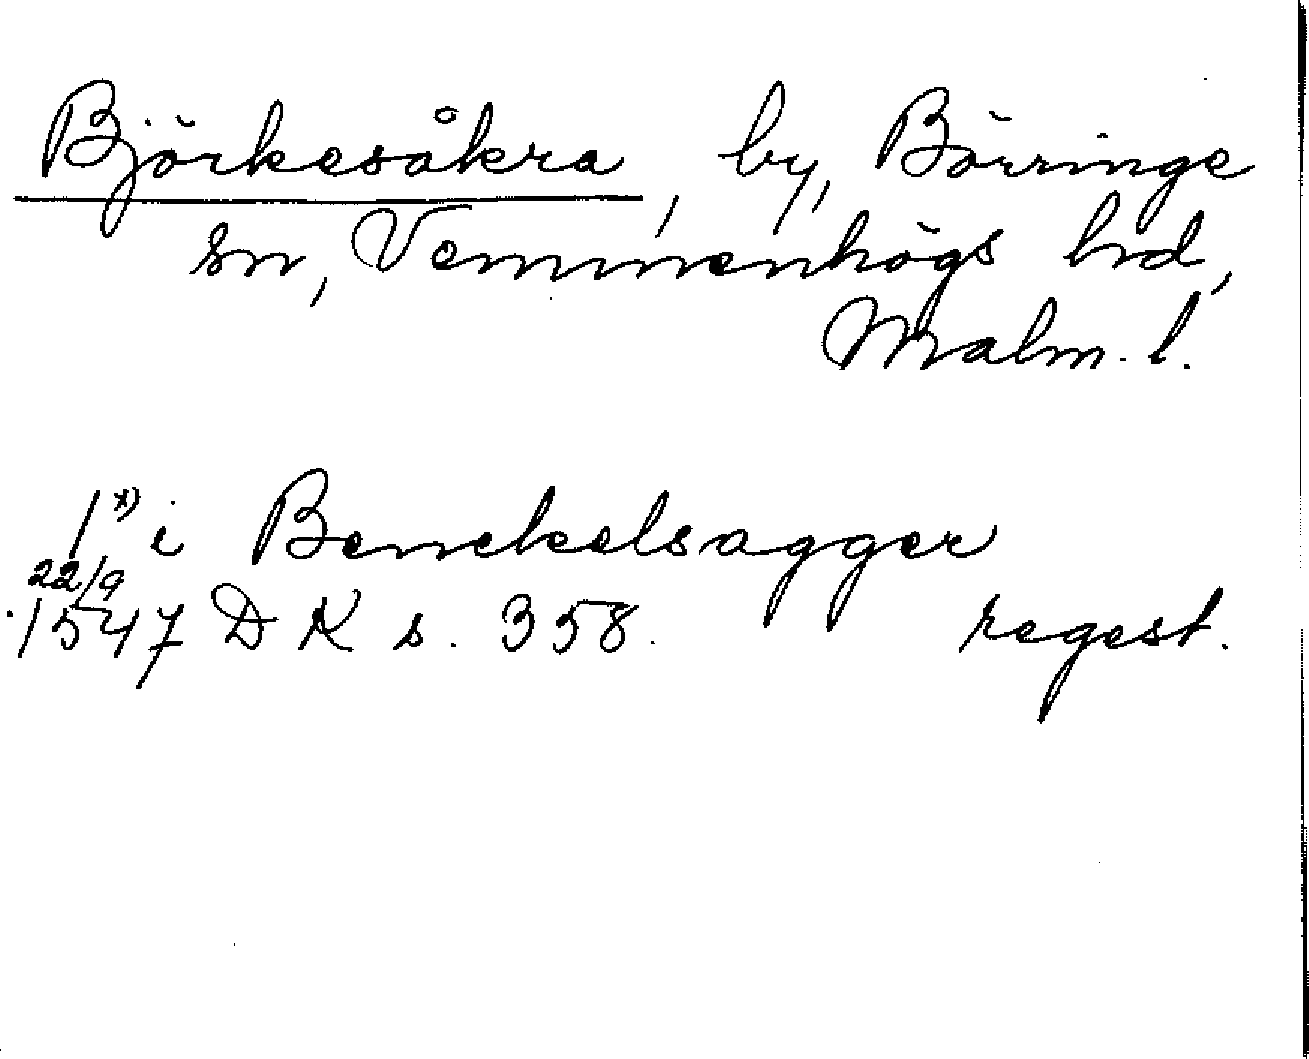 Björkesåkra, by, Börringe
sn, Vemmenhögs hrd,
Malm. l.
1*) i Benckelsagger
22/9
1547 DK s. 358. regest.